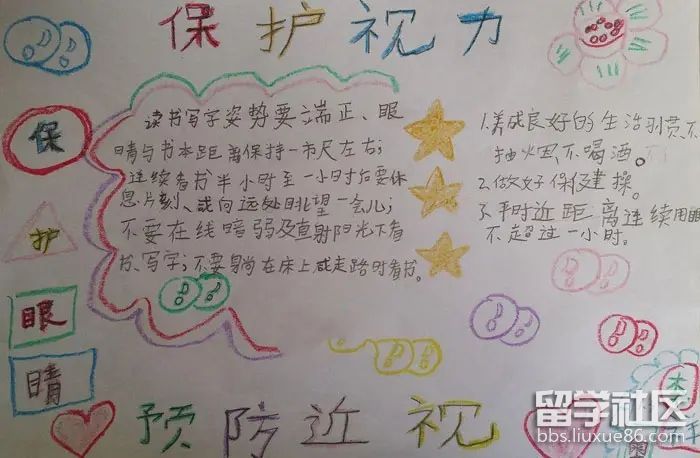 保护视力
保
护
眼
睛
读书写字姿势要端正、眼
睛与书本距离保持一市尺左右；
连续看书半小时至一小时后要休
息片刻、或向远处眺望一会儿；
不要在线暗弱及直射阳光下看
书、写字；不要躺在床上或走路时看书。
1.养成良好的生活习惯不
抽烟不喝酒。
2.做好保健操。
3.平时近距离连续用眼
不超过一小时。
预防近视
留学社区
bbs.liuxue86.com